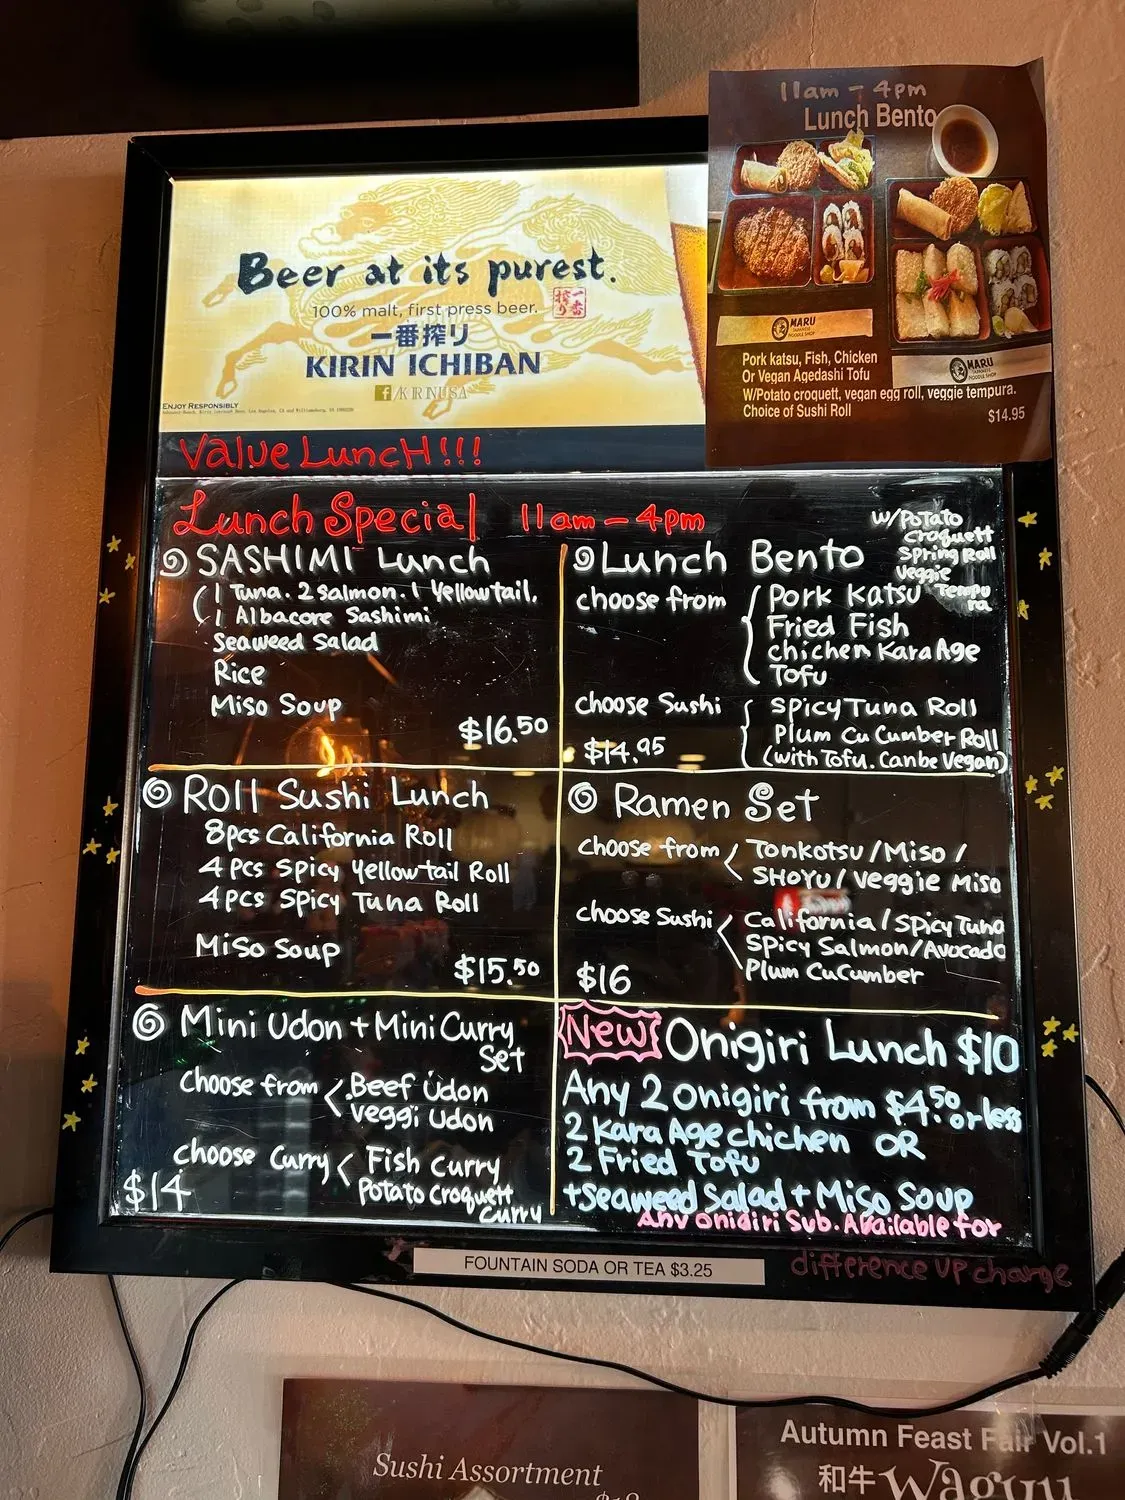 11am - 4pm
Lunch Bento
MARU
JAPANESE
NOODLE SHOP
MARU
JAPANESE
NOODLE SHOP
Pork katsu, Fish, Chicken
Or Vegan Agedashi Tofu
W/Potato croquett, vegan egg roll, veggie tempura.
Choice of Sushi Roll
$14.95
Beer at its purest.
100% malt, first press beer.
一番搾り
一番搾り
KIRIN ICHIBAN
f/KIRINUSA
ENJOY RESPONSIBLY
Value Lunch!!!
Lunch Special 11am - 4pm
SASHIMI Lunch
1 Tuna. 2 Salmon. 1 Yellowtail.
1 Albacore Sashimi
Seaweed Salad
Rice
Miso Soup
$16.50
Lunch Bento
w/Potato
Croquett
Spring Roll
Veggie
Tempu
ra
choose from
Pork Katsu
Fried Fish
chichen Kara Age
Tofu
choose Sushi
Spicy Tuna Roll
Plum CuCumber Roll
(with Tofu. Can be Vegan)
$14.95
Roll Sushi Lunch
8pcs California Roll
4 pcs Spicy Yellowtail Roll
4 pcs Spicy Tuna Roll
Miso Soup
$15.50
Ramen Set
choose from
Tonkotsu / Miso /
SHOYU / Veggie Miso
choose Sushi
California / Spicy Tuna
Spicy Salmon / Avocado
Plum CuCumber
$16
Mini Udon + Mini Curry
Set
choose from
Beef Udon
Veggi Udon
choose Curry
Fish Curry
Potato Croquett
Curry
$14
New Onigiri Lunch $10
Any 2 onigiri from $4.50 or less
2 Kara Age chichen OR
2 Fried Tofu
+ Seaweed Salad + Miso Soup
Any onigiri Sub. Available for
difference up charge
FOUNTAIN SODA OR TEA $3.25
Sushi Assortment
Autumn Feast Fair Vol.1
和牛 Wagyu